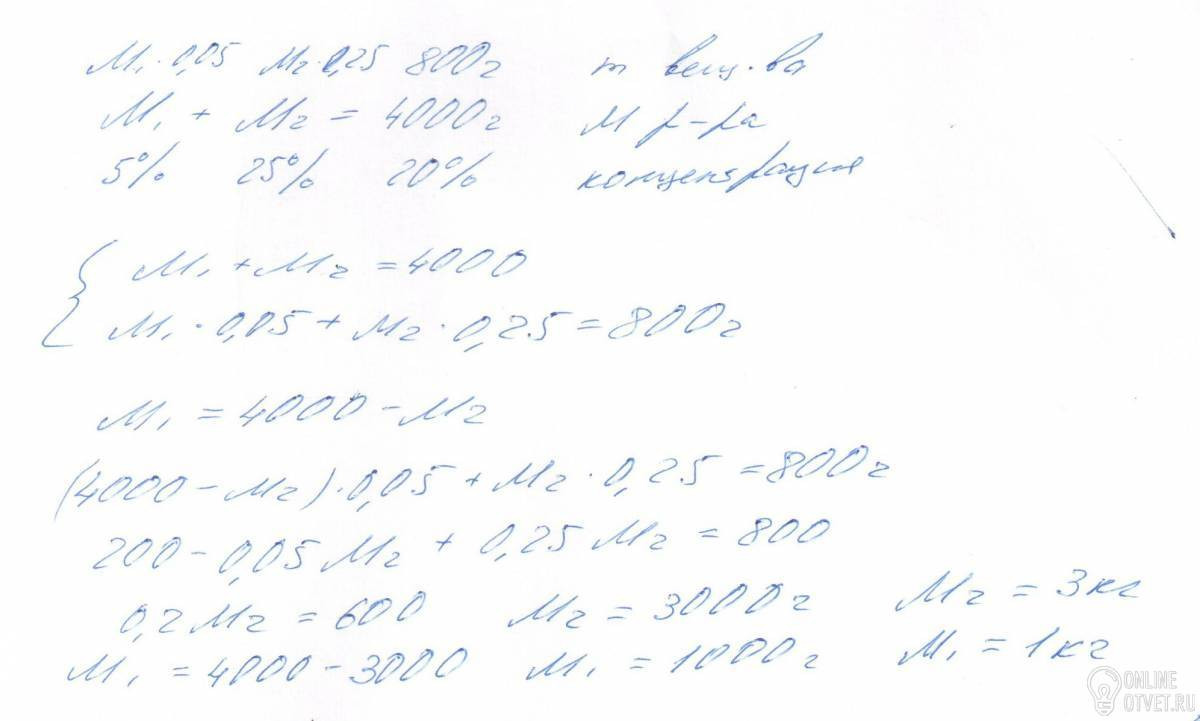 M₁·0,05 M₂·0,25 800г m вещ-ва
M₁ + M₂ = 4000г M р-ра
5% 25% 20% концентрация
{ M₁ + M₂ = 4000
M₁·0,05 + M₂·0,25 = 800г
M₁ = 4000 - M₂
(4000 - M₂)·0,05 + M₂·0,25 = 800г
200 - 0,05 M₂ + 0,25 M₂ = 800
0,2 M₂ = 600 M₂ = 3000г M₂ = 3кг
M₁ = 4000 - 3000 M₁ = 1000г M₁ = 1кг
ONLINE
OTVET.RU